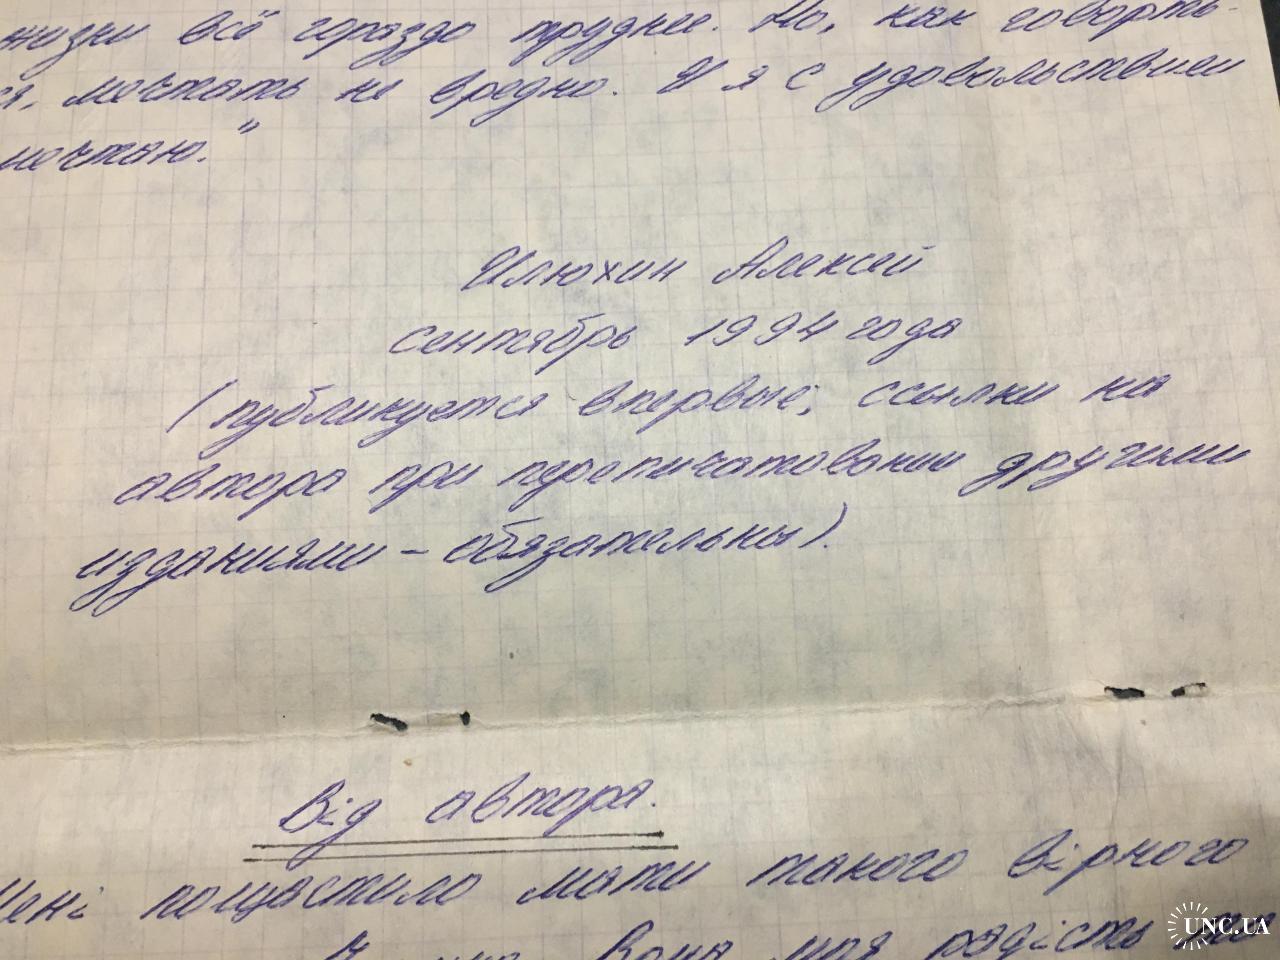 жизни всё гораздо труднее. Но, как говорить-
ся, мечтать не вредно. И я с удовольствием
мечтаю."
Илюхин Алексей
сентябрь 1994 года
(публикуется впервые; ссылки на
автора при перепичатовании другими
изданиями - обязательны).
Від автора.
Мені пощастило мати такого вірного
Вона моя радість
UNC.UA